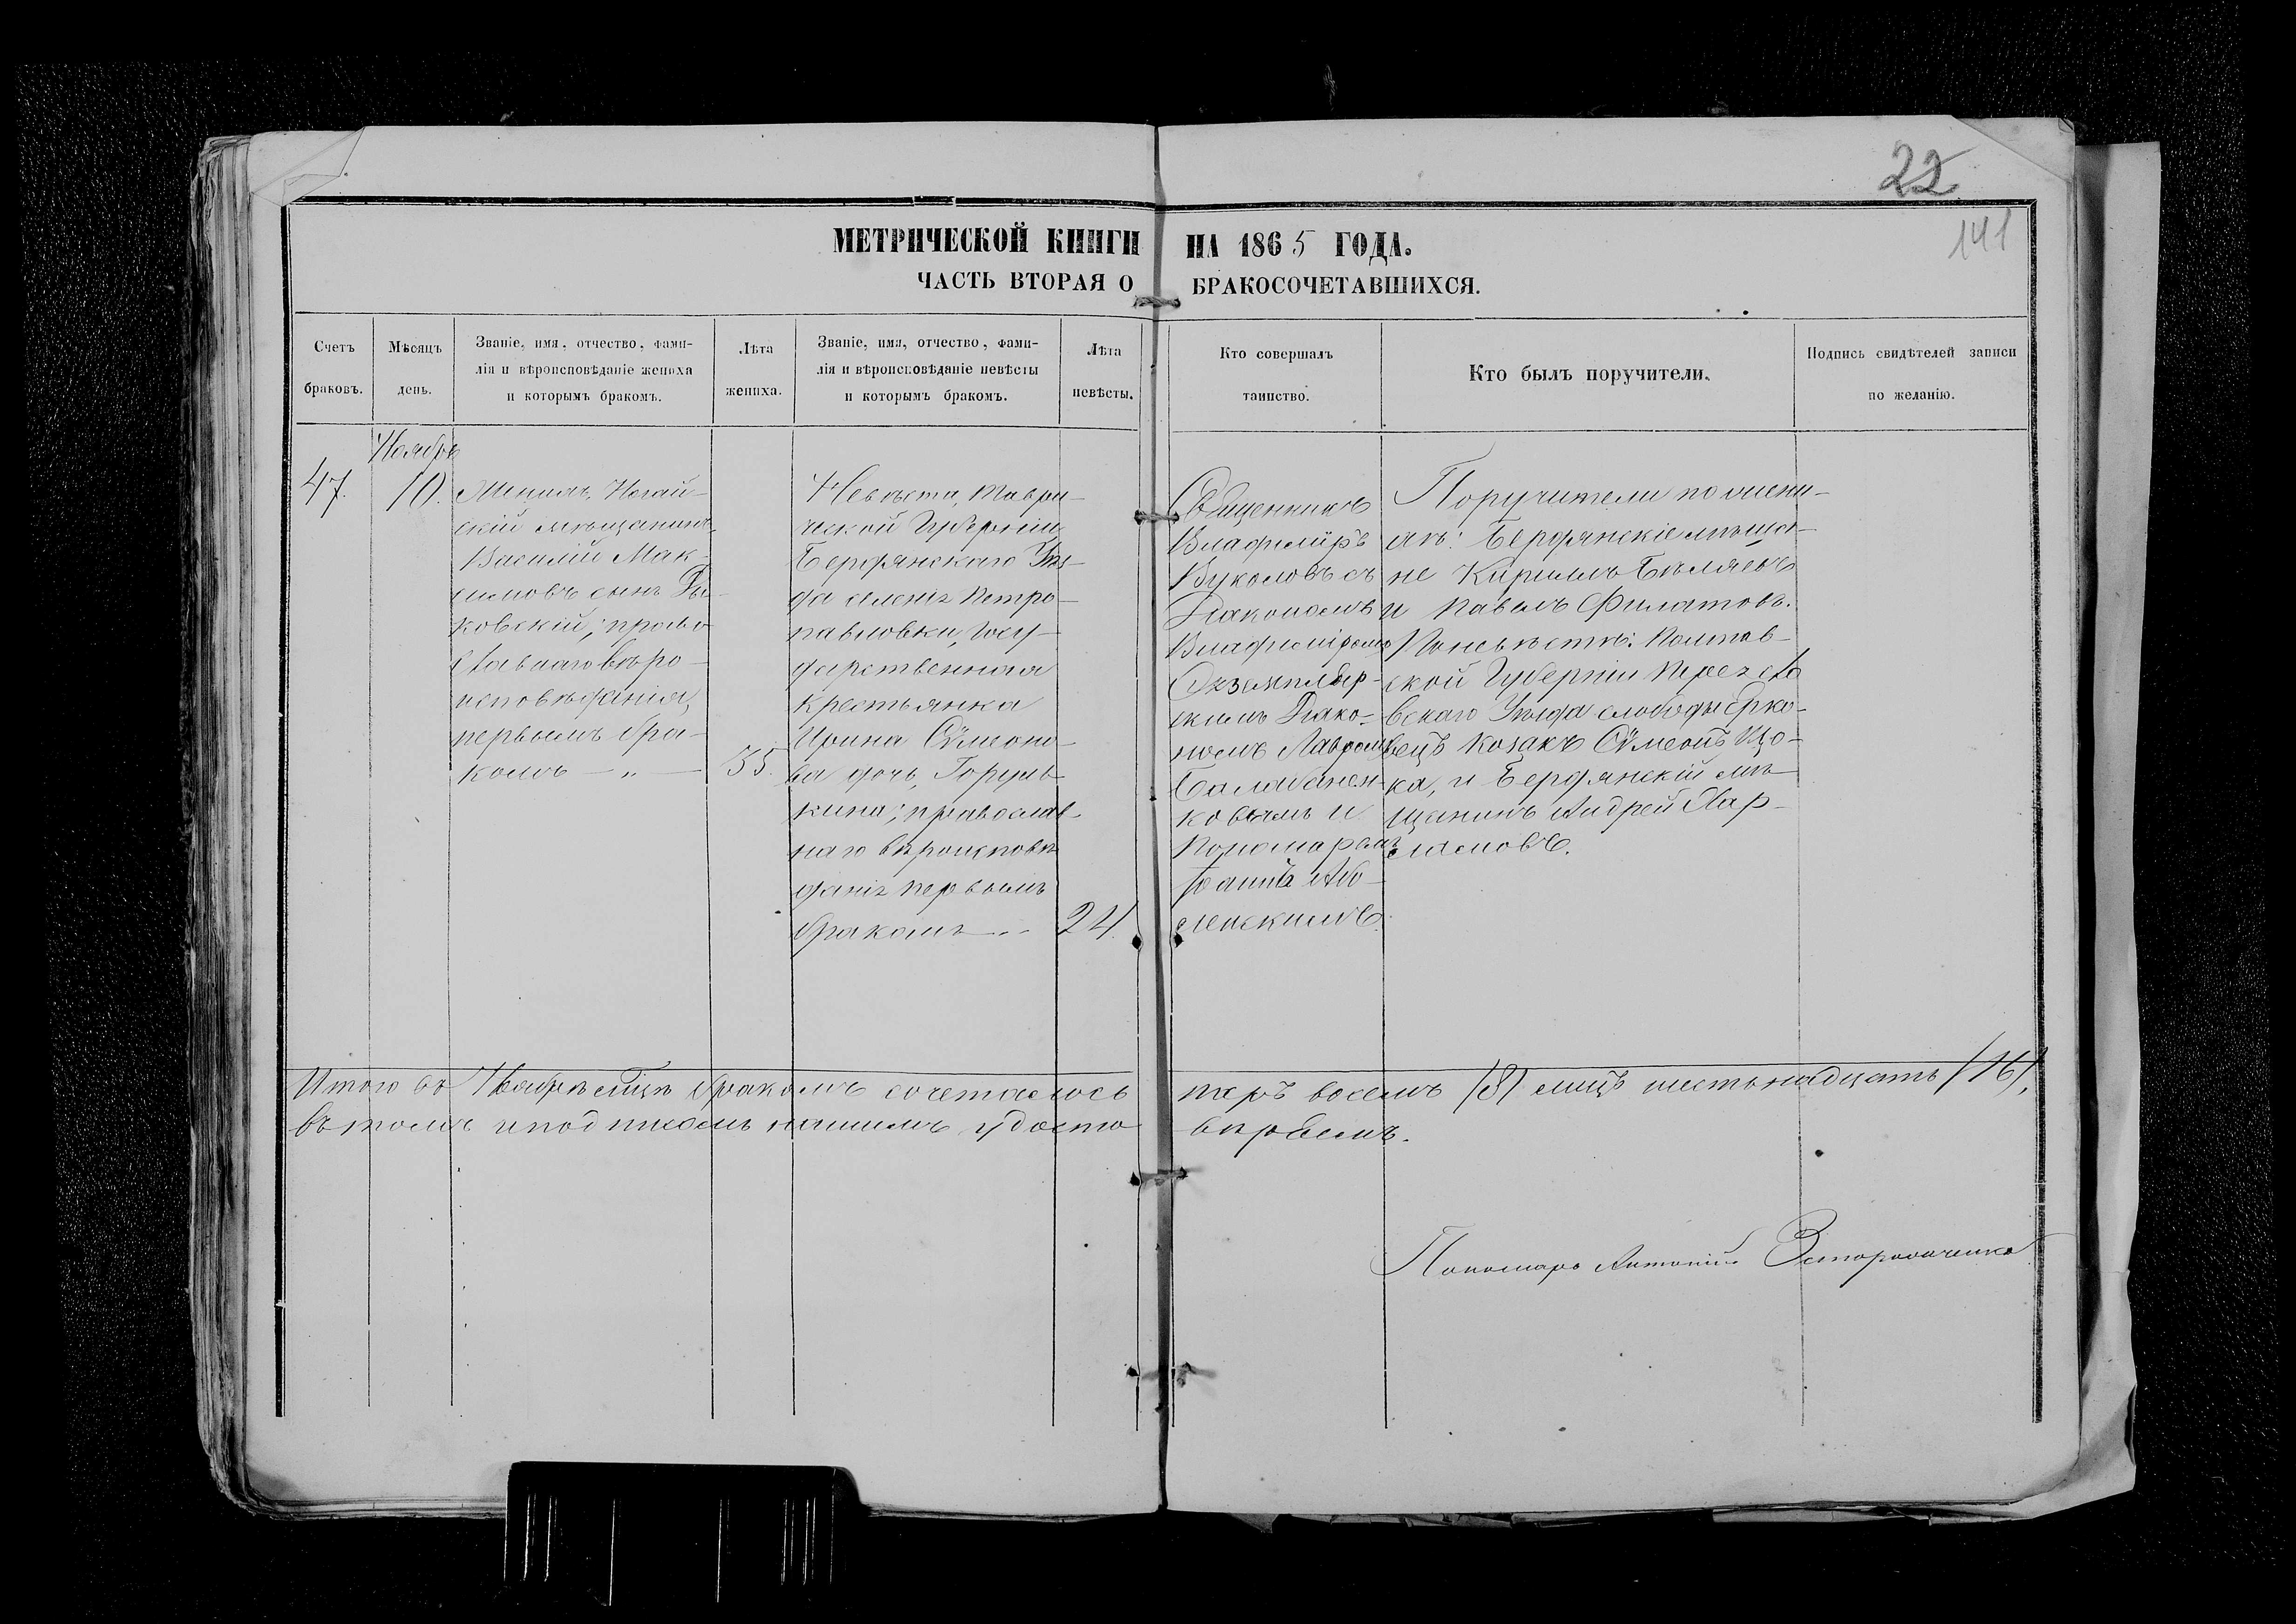 22
141
МЕТРИЧЕСКОЙ КНИГИ НА 1865 ГОДА.
ЧАСТЬ ВТОРАЯ О БРАКОСОЧЕТАВШИХСЯ.
Счетъ
браковъ.
Мѣсяцъ
день.
Званіе, имя, отчество, фами-
лія и вѣроисповѣданіе жениха
и которымъ бракомъ.
Лѣта
жениха.
Званіе, имя, отчество, фами-
лія и вѣроисповѣданіе невѣсты
и которымъ бракомъ.
Лѣта
невѣсты.
Кто совершалъ
таинство.
Кто былъ поручители.
Подпись свидѣтелей записи
по желанію.
47.
Ноябрь
10.
Женихъ, Ногай-
скій мѣщанинъ
Василій Мак-
симовъ сынъ
ковскій; право
славнаго вѣро-
исповѣданія,
первымъ бра-
комъ — „ —
35.
Невѣста, Таври-
ческой Губерніи
Бердянскаго Уѣз-
да селенія Петро-
павловки, Госу-
дарственная
крестьянка
Ирина Сѵмеоно-
ва дочь,
кина; православ-
наго вѣроисповѣ
данія первымъ
бракомъ
24.
Священникъ
Владиміръ
Вуколовъ съ
Діакономъ
Владиміромъ
Экземпляр-
скимъ Діако-
номъ
ковымъ и
Пономаремъ
ленскимъ.
Поручители по жени-
хѣ: Бердянскіе мѣща-
не Кириллъ Бѣляевъ
и Павелъ Филатовъ.
По невѣстѣ: Полтав-
ской Губерніи Переясла
вскаго Уѣзда слободы Ерко-
вецъ козакъ Сѵмеонъ Що-
ка, и Бердянскій мѣ-
щанинъ Андрей Хар-
ламовъ.
Итого въ Ноябрѣ мѣсяцѣ бракомъ сочеталось паръ восемъ /8/ лицъ шестьнадцать /16/,
въ томъ и подписомъ нашимъ удосто вѣряемъ.
Пономарь Антоній